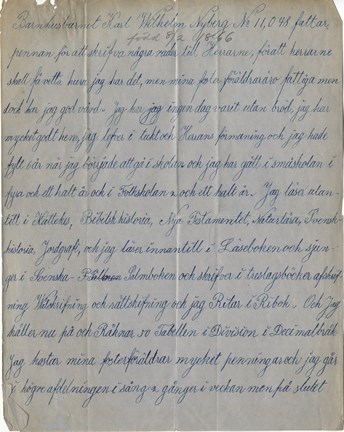 Barnhusbarnet Karl Wilhelm Nyberg No 11,048 fattar,
född 8/2 1866
pennan för att skrifva några rader till Herrarne, för att herrarne
skall få vetta huru jag har det, men mina foster föräldrar äro fattiga men
dock har jag god vård. Jag har jag ingen dag varit utan bröd, jag har
mycket godt hem, jag lefver i tukt och Herrans förmaning och jag hade
fylt år när jag började att gå i skolan och jag har gått i småskolan i
fyra och ett halft år och i Folkskolan 2 och ett halft år. Jag läser utan-
till i Kattekes, Bibelsk historia, Nya Testamentet, Naturlära, Svensk-
historia Jordgraf, och jag läser innantill i Läseboken och sjun-
ger i Svenska Psalmboken och skrifver i tre slags böcker afskrif-
ning Välskrifning och rättskrifning och jag Ritar i Ribok. Och Jag
håller nu på och Räknar 10 Tabellen i Division i Decimalbråk
Jag kostar mina fosterföräldrar mycket penningar och jag går
i högre afdelningen i sång 2 gånger i veckan men på slutet